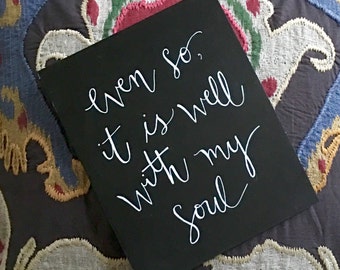 even so,
it is well
with my
soul